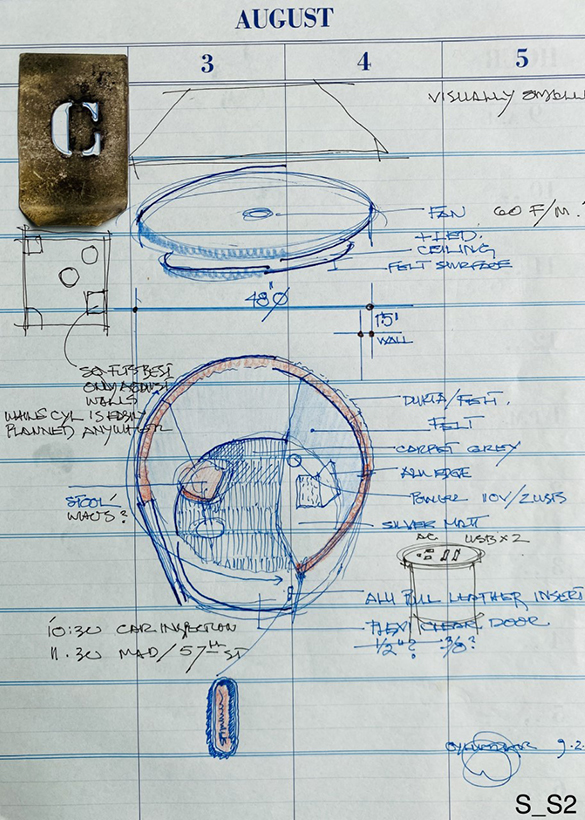 AUGUST
3
4
5
C
VISUALLY
FAN 60 F/M.
+ LED.
CEILING
FELT SURFACE
48"Ø
1.5"
WALL
SQ FITS BEST
ONLY AGAINST
WALLS
WHILE CYL IS EASILY
PLANNED ANYWHERE
DURRA/FELT.
FELT
CARPET GREY
ALU EDGE
POWER 110V/2USB
SILVER MATT
STOOL
AC USB X 2
ALU PULL LEATHER INSERT
PLEXI CLEAR DOOR
1/2"? 3/8"?
10:30 CAR INSPECTION
11.30 MAD/57TH ST
S_S2